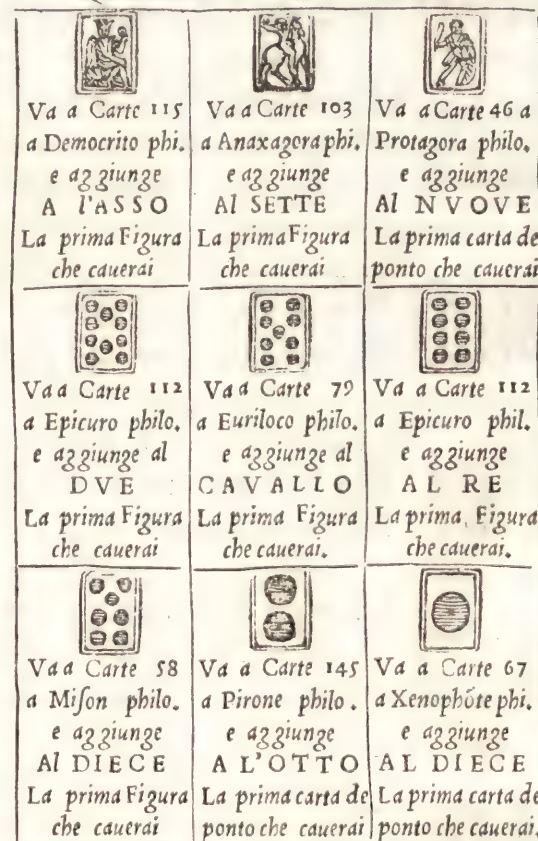 Va a Carte 115
a Democrito phi.
e aggiunge
A l'ASSO
La prima Figura
che cauerai
Va a Carte 103
a Anaxagora phi.
e aggiunge
Al SETTE
La prima Figura
che cauerai
Va a Carte 46 a
Protagora philo.
e aggiunge
Al NVOVE
La prima carta de
ponto che cauerai
Va a Carte 112
a Epicuro philo.
e aggiunge al
DVE
La prima Figura
che cauerai
Va a Carte 79
a Euriloco philo.
e aggiunge al
CAVALLO
La prima Figura
che cauerai.
Va a Carte 112
a Epicuro phil.
e aggiunge
AL RE
La prima Figura
che cauerai.
Va a Carte 58
a Miſon philo.
e aggiunge
Al DIECE
La prima Figura
che cauerai
Va a Carte 145
a Pirone philo.
e aggiunge
A L'OTTO
La prima carta de
ponto che cauerai
Va a Carte 67
a Xenophōte phi.
e aggiunge
AL DIECE
La prima carta de
ponto che cauerai.